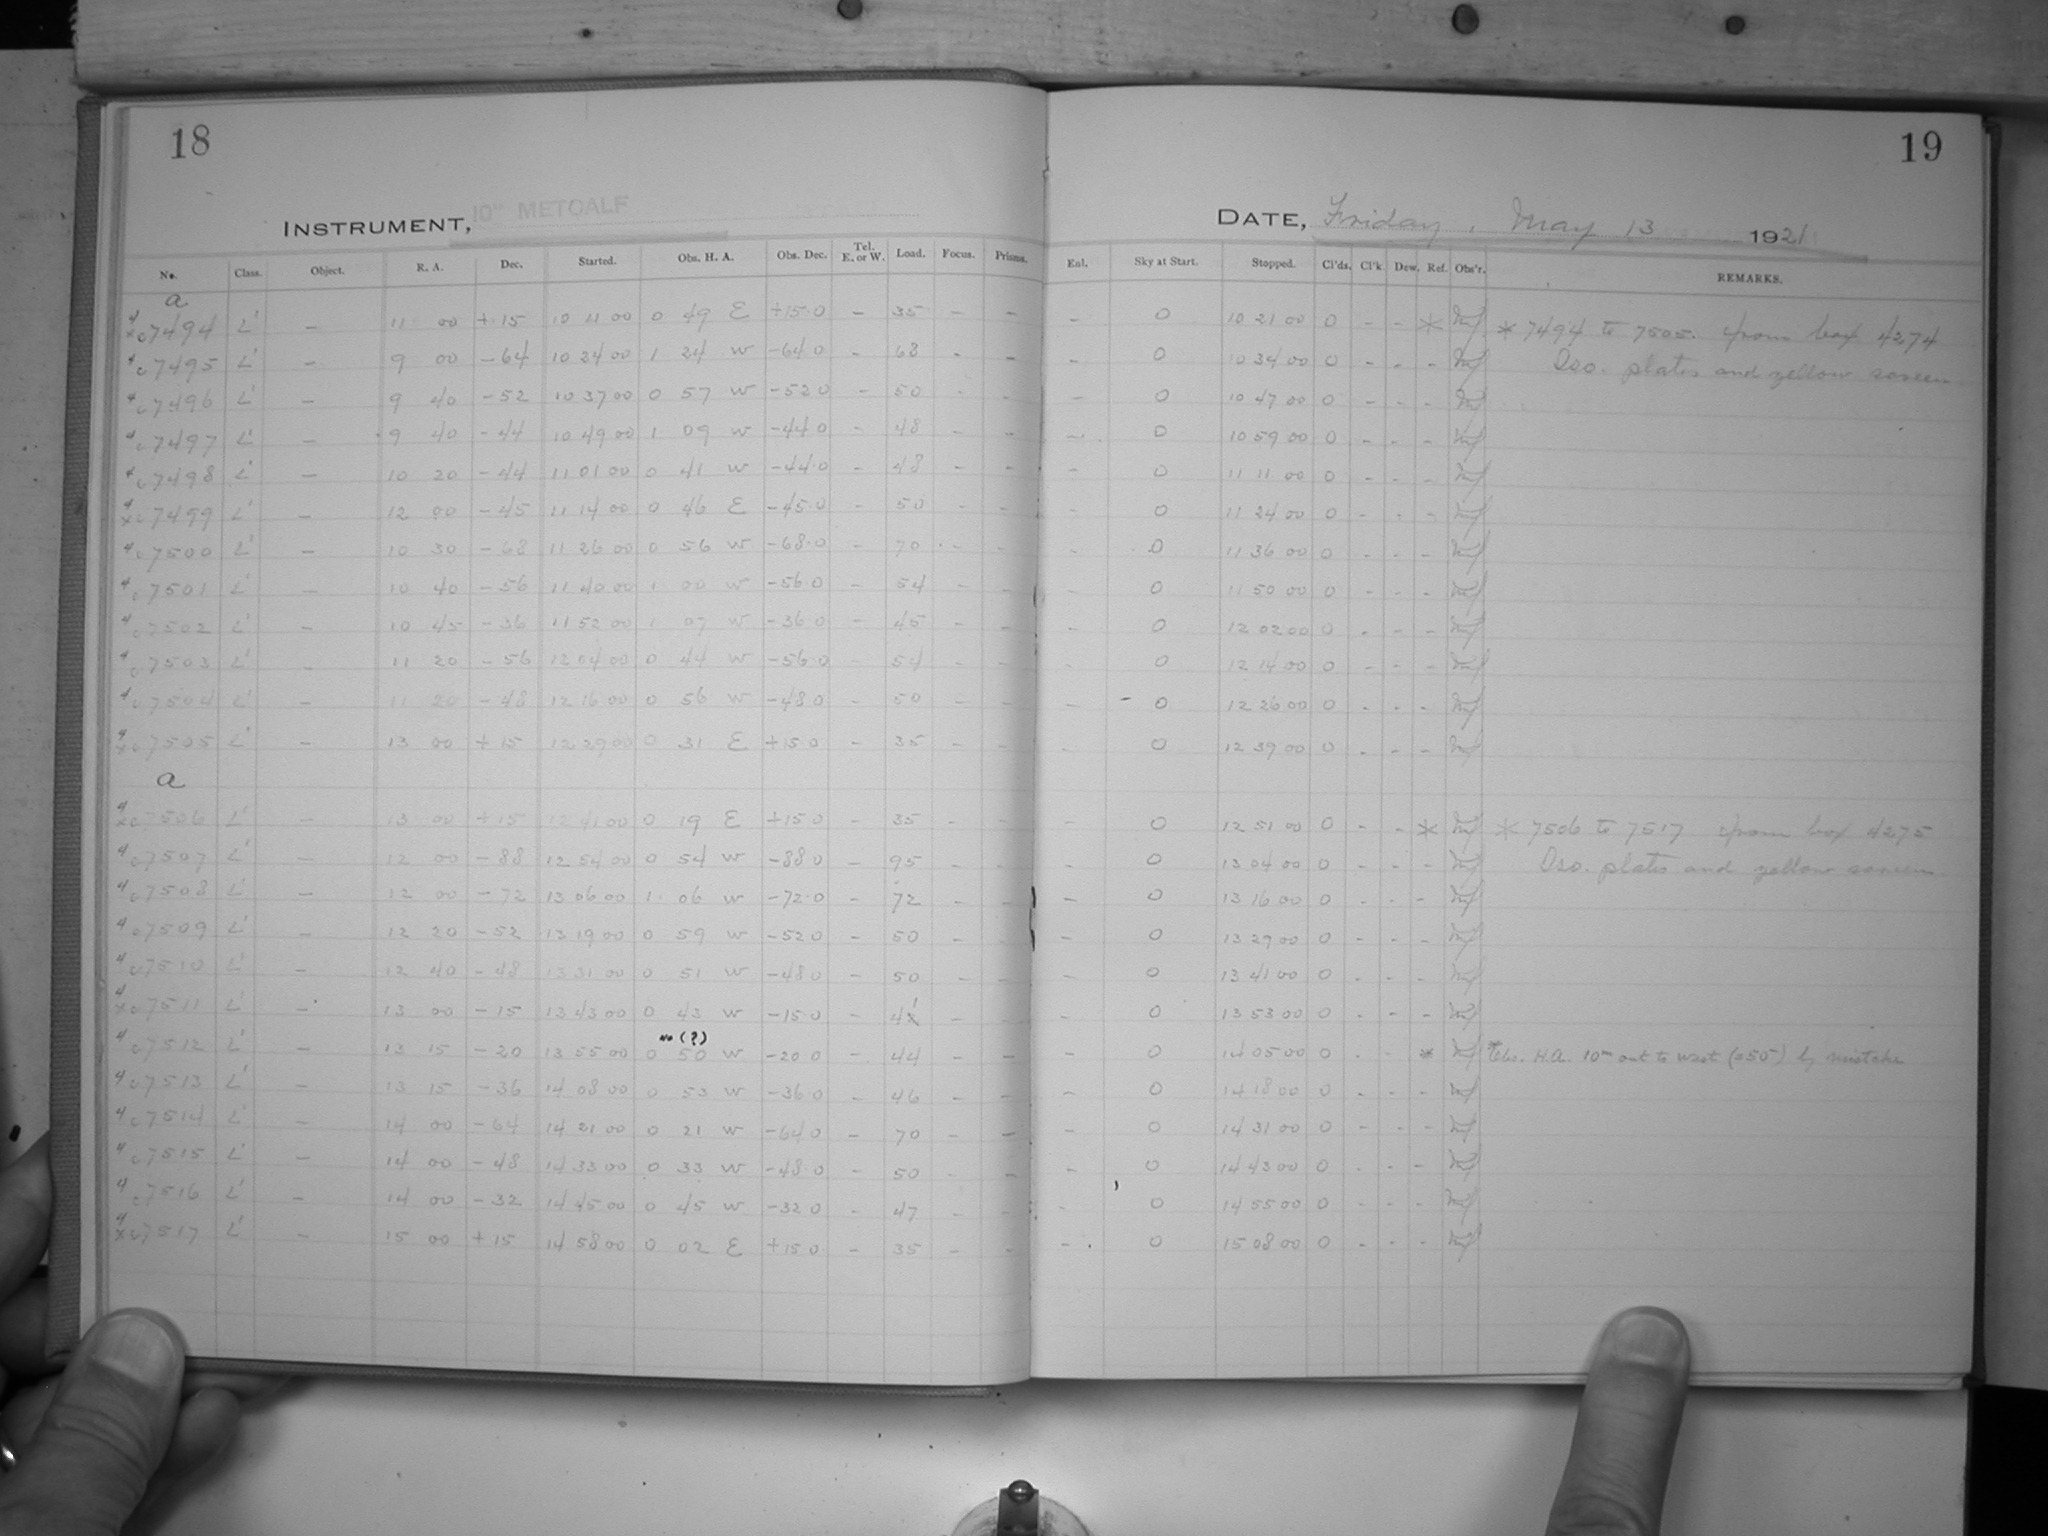 18
INSTRUMENT, 10" METCALF
No. Class. Object. R. A. Dec. Started. Obs. H. A. Obs. Dec. Tel. E. or W. Load. Focus. Prisms.
a
7494 L' – 11 00 +15 10 11 00 0 49 E +15.0 – 35 – –
7495 L' – 9 00 –64 10 24 00 1 24 W –64.0 – 68 – –
7496 L' – 9 40 –52 10 37 00 0 57 W –52.0 – 50 – –
7497 L' – 9 40 –44 10 49 00 1 09 W –44.0 – 48 – –
7498 L' – 10 20 –44 11 01 00 0 41 W –44.0 – 48 – –
7499 L' – 12 00 –45 11 14 00 0 46 E –45.0 – 50 – –
7500 L' – 10 30 –68 11 26 00 0 56 W –68.0 – 70 – –
7501 L' – 10 40 –56 11 40 00 1 00 W –56.0 – 54 – –
7502 L' – 10 45 –36 11 52 00 1 07 W –36.0 – 45 – –
7503 L' – 11 20 –56 12 04 00 0 44 W –56.0 – 54 – –
7504 L' – 11 20 –48 12 16 00 0 56 W –48.0 – 50 – –
7505 L' – 13 00 +15 12 29 00 0 31 E +15.0 – 35 – –
a
7506 L' – 13 00 +15 12 41 00 0 19 E +15.0 – 35 – –
7507 L' – 12 00 –88 12 54 00 0 54 W –88.0 – 95 – –
7508 L' – 12 00 –72 13 06 00 1 06 W –72.0 – 72 – –
7509 L' – 12 20 –52 13 19 00 0 59 W –52.0 – 50 – –
7510 L' – 12 40 –48 13 31 00 0 51 W –48.0 – 50 – –
7511 L' – 13 00 –15 13 43 00 0 43 W –15.0 – 41 – –
no (?)
7512 L' – 13 15 –20 13 55 00 0 50 W –20.0 – 44 – –
7513 L' – 13 15 –36 14 08 00 0 53 W –36.0 – 46 – –
7514 L' – 14 00 –64 14 21 00 0 21 W –64.0 – 70 – –
7515 L' – 14 00 –48 14 33 00 0 33 W –48.0 – 50 – –
7516 L' – 14 00 –32 14 45 00 0 45 W –32.0 – 47 – –
7517 L' – 15 00 +15 14 58 00 0 02 E +15.0 – 35 – –
19
DATE, Friday, May 13 1921
Enl. Sky at Start. Stopped. Cl'ds. Cl'k. Dew. Ref. Obs'r. REMARKS.
– 0 10 21 00 0 – – * * 7494 to 7505. from box 4274
– 0 10 34 00 0 – – – Iso. plates and yellow screen
– 0 10 47 00 0 – – –
– 0 10 59 00 0 – – –
– 0 11 11 00 0 – – –
– 0 11 24 00 0 – – –
– 0 11 36 00 0 – – –
– 0 11 50 00 0 – – –
– 0 12 02 00 0 – – –
– 0 12 14 00 0 – – –
– 0 12 26 00 0 – – –
– 0 12 39 00 0 – – –
– 0 12 51 00 0 – – * * 7506 to 7517 from box 4275
– 0 13 04 00 0 – – – Iso. plates and yellow screen
– 0 13 16 00 0 – – –
– 0 13 29 00 0 – – –
– 0 13 41 00 0 – – –
– 0 13 53 00 0 – – –
– 0 14 05 00 0 – – * * Obs. H.A. 10m out to west (=50) by mistake
– 0 14 18 00 0 – – –
– 0 14 31 00 0 – – –
– 0 14 43 00 0 – – –
– 0 14 55 00 0 – – –
– 0 15 08 00 0 – – –